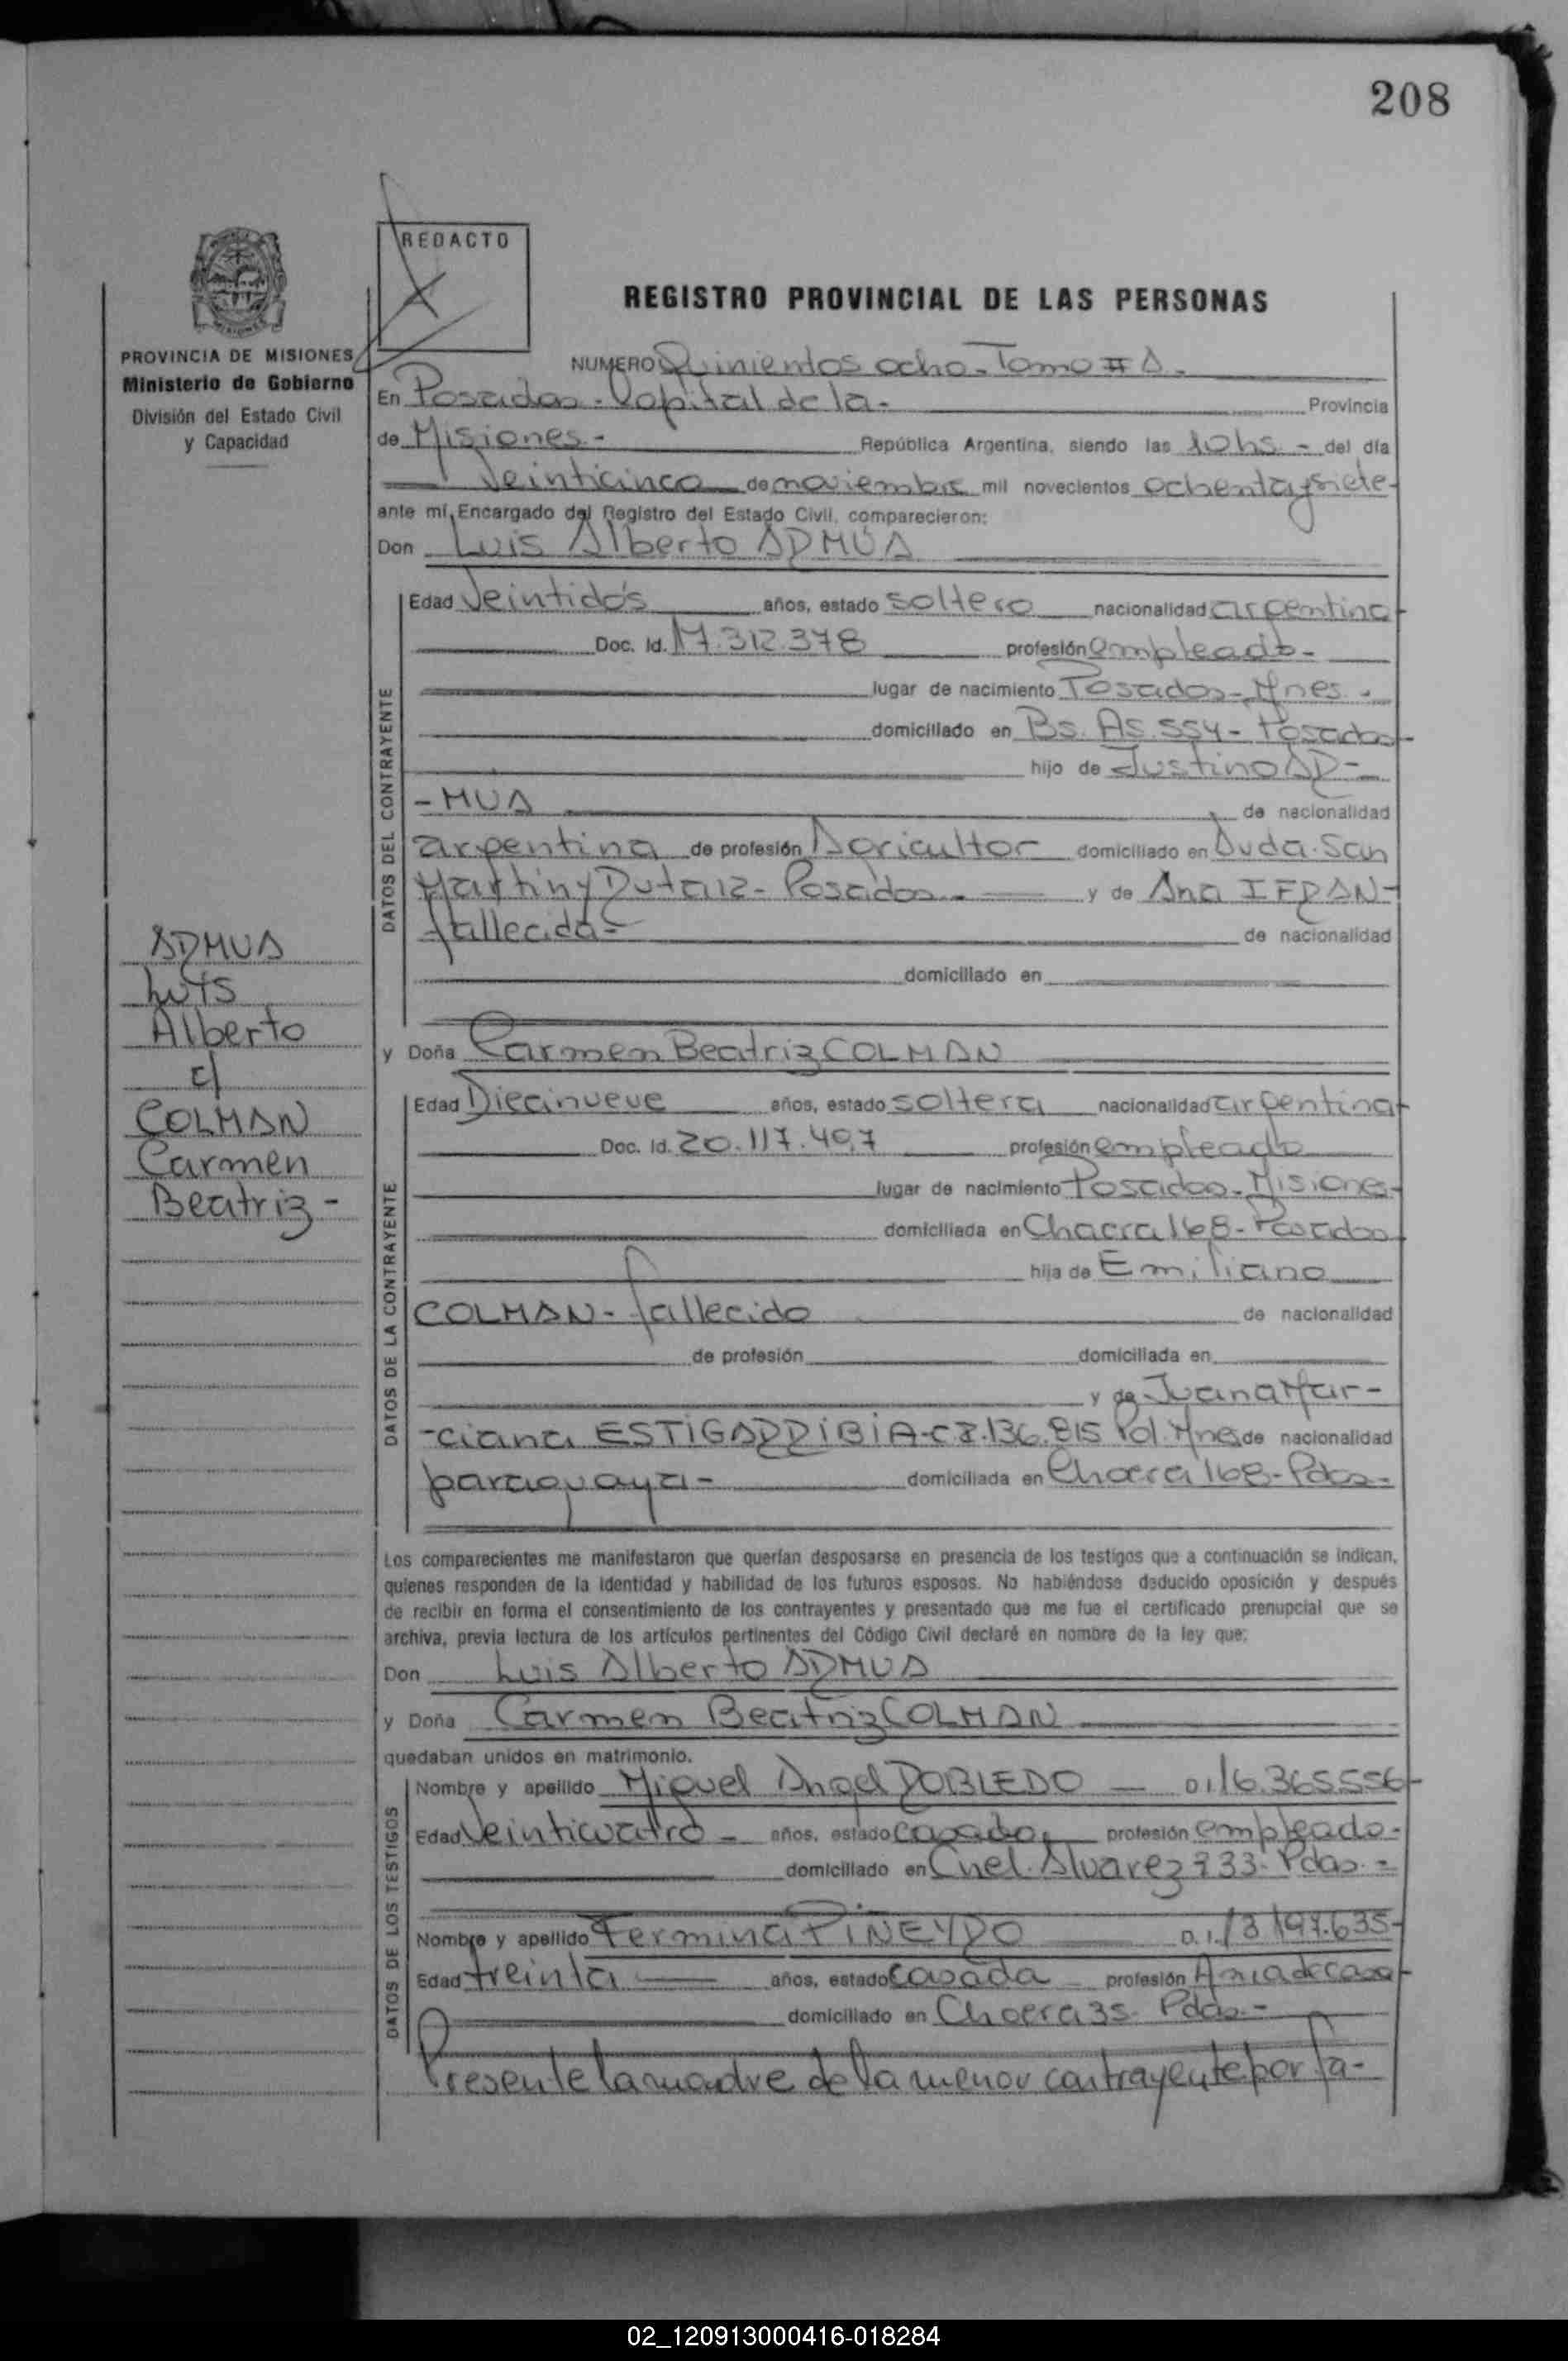 208
REDACTO
REGISTRO PROVINCIAL DE LAS PERSONAS
PROVINCIA DE MISIONES
Ministerio de Gobierno
División del Estado Civil
y Capacidad
NUMERO Quinientos ocho - Tomo # A -
En Posadas - Capital de la - Provincia
de Misiones - República Argentina, siendo las 10 hs - del día
Veinticinco de noviembre mil novecientos ochenta y siete -
ante mí, Encargado del Registro del Estado Civil, comparecieron:
Don Luis Alberto ARMUA
DATOS DEL CONTRAYENTE
Edad Veintidós años, estado soltero nacionalidad argentina -
Doc. Id. 17.312.378 profesión empleado -
lugar de nacimiento Posadas - Mnes -
domiciliado en Bs. As. 554 - Posadas -
hijo de Justino AR -
- MUA de nacionalidad
argentina de profesión Agricultor domiciliado en Avda. San
Martin y - Posadas - y de Ana IFRAN -
fallecida - de nacionalidad
domiciliado en
ARMUA
Luis
Alberto
c/
COLMAN
Carmen
Beatriz -
y Doña Carmen Beatriz COLMAN
DATOS DE LA CONTRAYENTE
Edad Diecinueve años, estado soltera nacionalidad argentina -
Doc. Id. 20.117.407 profesión empleada
lugar de nacimiento Posadas - Misiones -
domiciliada en Chacra 168 - Posadas
hija de Emiliano
COLMAN - fallecido de nacionalidad
de profesión domiciliada en
y de Juana Mar -
- ciana ESTIGARRIBIA - C I. 136.815 Pol. Mnes de nacionalidad
paraguaya - domiciliada en Chacra 168 - Pdas -
Los comparecientes me manifestaron que querían desposarse en presencia de los testigos que a continuación se indican,
quienes responden de la identidad y habilidad de los futuros esposos. No habiéndose deducido oposición y después
de recibir en forma el consentimiento de los contrayentes y presentado que me fue el certificado prenupcial que se
archiva, previa lectura de los artículos pertinentes del Código Civil declaré en nombre de la ley que:
Don Luis Alberto ARMUA
y Doña Carmen Beatriz COLMAN
quedaban unidos en matrimonio.
DATOS DE LOS TESTIGOS
Nombre y apellido Miguel Angel ROBLEDO - D.I. 16.365.556 -
Edad Veinticuatro - años, estado casado profesión empleado -
domiciliado en Cnel. Alvarez 933 - Pdas. -
Nombre y apellido Fermina PIÑEYRO D.I. 13.197.635 -
Edad treinta años, estado casada - profesión Ama de casa -
domiciliado en Chacra 35 - Pdas -
Presente la madre de la menor contrayente por fa -
02_120913000416-018284